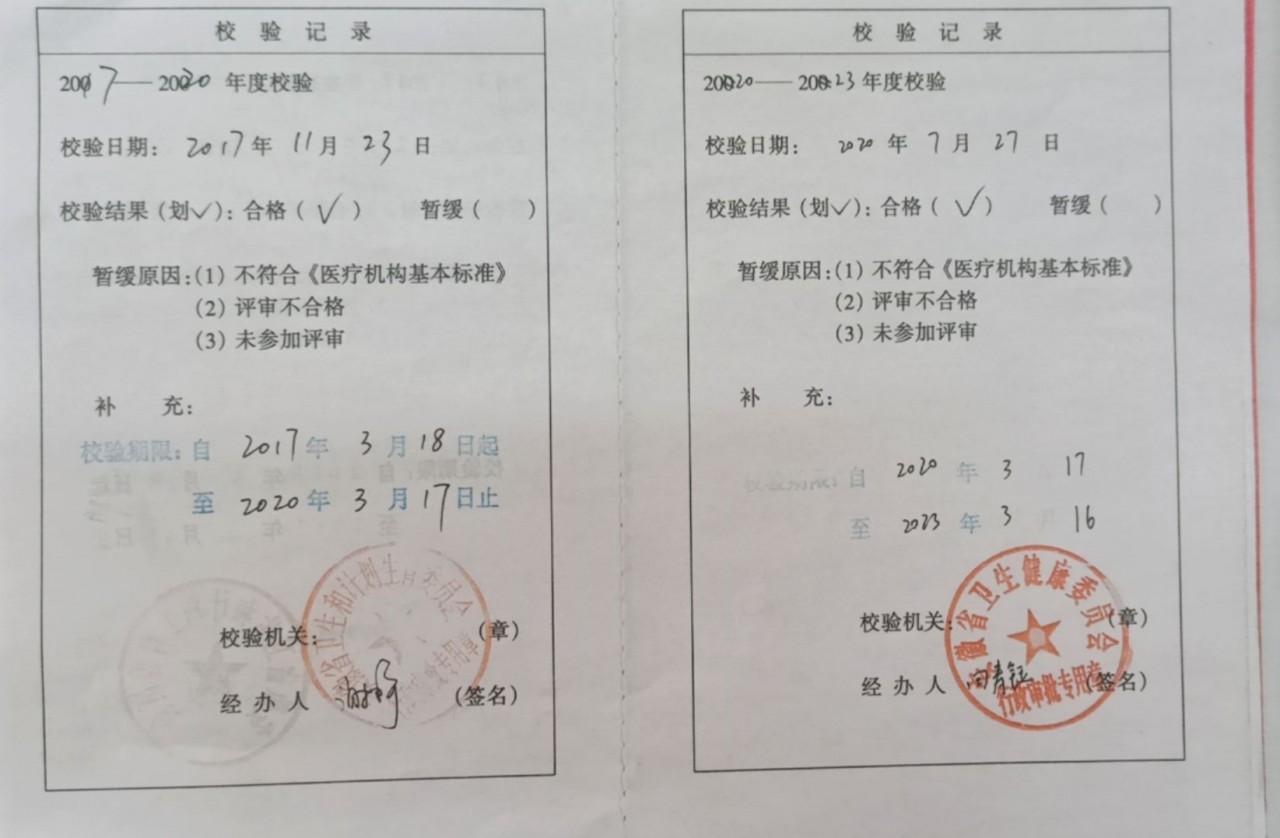 校验记录
2017——2020 年度校验
校验日期： 2017年 11月 23日
校验结果（划✓）：合格（✓） 暂缓（ ）
暂缓原因：(1) 不符合《医疗机构基本标准》
(2) 评审不合格
(3) 未参加评审
补 充：
校验期限：自 2017年 3月18日起
至 2020年 3月17日止
省卫生和计划生育委员会
专用章
校验机关： （章）
经办人 （签名）
校验记录
2020——2023年度校验
校验日期： 2020年 7月 27日
校验结果（划✓）：合格（✓） 暂缓（ ）
暂缓原因：(1) 不符合《医疗机构基本标准》
(2) 评审不合格
(3) 未参加评审
补 充：
校验期限：自 2020年 3 17
至 2023年 3 16
安徽省卫生健康委员会
校验机关： （章）
经办人 （签名）
行政审批专用章